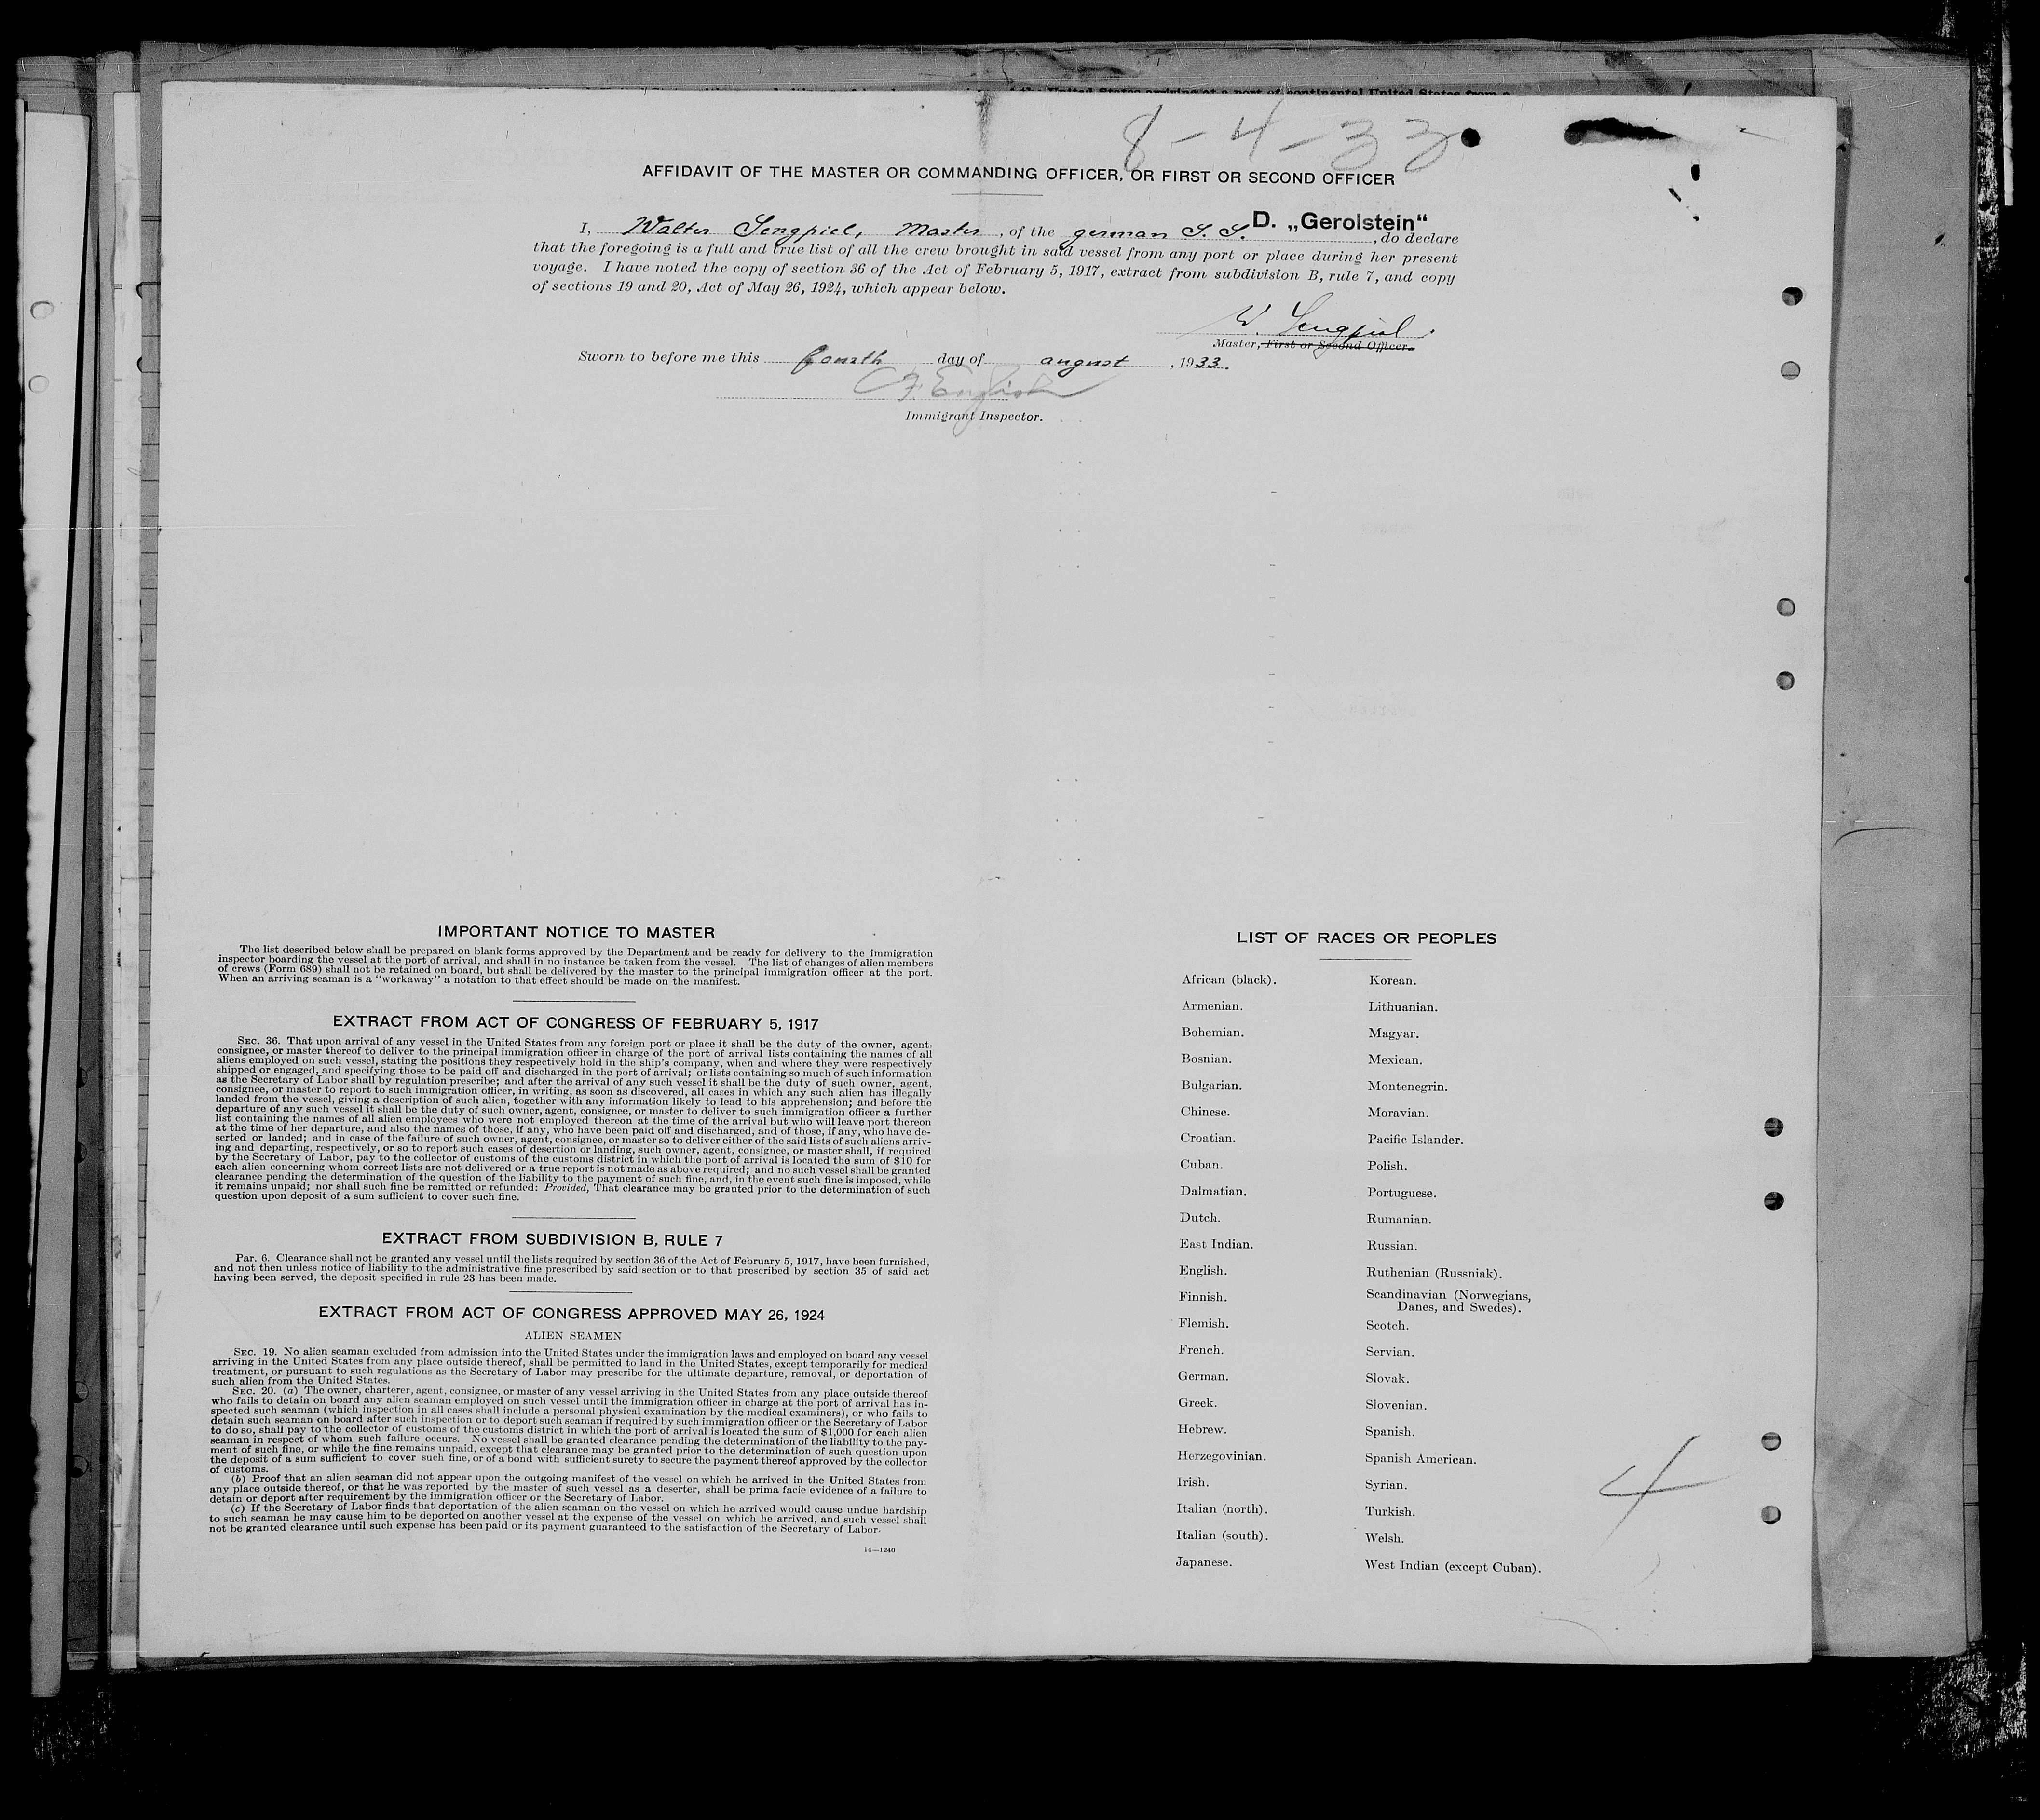 8-4-33
AFFIDAVIT OF THE MASTER OR COMMANDING OFFICER, OR FIRST OR SECOND OFFICER
I, Walter Sengpiel, Master, of the german S. S. D. „Gerolstein“, do declare
that the foregoing is a full and true list of all the crew brought in said vessel from any port or place during her present
voyage. I have noted the copy of section 36 of the Act of February 5, 1917, extract from subdivision B, rule 7, and copy
of sections 19 and 20, Act of May 26, 1924, which appear below.
W. Sengpiel
Master, First or Second Officer.
Sworn to before me this fourth day of august, 1933.
C F. English
Immigrant Inspector.
IMPORTANT NOTICE TO MASTER
The list described below shall be prepared on blank forms approved by the Department and be ready for delivery to the immigration
inspector boarding the vessel at the port of arrival, and shall in no instance be taken from the vessel. The list of changes of alien members
of crews (Form 689) shall not be retained on board, but shall be delivered by the master to the principal immigration officer at the port.
When an arriving seaman is a "workaway" a notation to that effect should be made on the manifest.
EXTRACT FROM ACT OF CONGRESS OF FEBRUARY 5, 1917
SEC. 36. That upon arrival of any vessel in the United States from any foreign port or place it shall be the duty of the owner, agent,
consignee, or master thereof to deliver to the principal immigration officer in charge of the port of arrival lists containing the names of all
aliens employed on such vessel, stating the positions they respectively hold in the ship's company, when and where they were respectively
shipped or engaged, and specifying those to be paid off and discharged in the port of arrival; or lists containing so much of such information
as the Secretary of Labor shall by regulation prescribe; and after the arrival of any such vessel it shall be the duty of such owner, agent,
consignee, or master to report to such immigration officer, in writing, as soon as discovered, all cases in which any such alien has illegally
landed from the vessel, giving a description of such alien, together with any information likely to lead to his apprehension; and before the
departure of any such vessel it shall be the duty of such owner, agent, consignee, or master to deliver to such immigration officer a further
list containing the names of all alien employees who were not employed thereon at the time of the arrival but who will leave port thereon
at the time of her departure, and also the names of those, if any, who have been paid off and discharged, and of those, if any, who have de-
serted or landed; and in case of the failure of such owner, agent, consignee, or master so to deliver either of the said lists of such aliens arriv-
ing and departing, respectively, or so to report such cases of desertion or landing, such owner, agent, consignee, or master shall, if required
by the Secretary of Labor, pay to the collector of customs of the customs district in which the port of arrival is located the sum of $10 for
each alien concerning whom correct lists are not delivered or a true report is not made as above required; and no such vessel shall be granted
clearance pending the determination of the question of the liability to the payment of such fine, and, in the event such fine is imposed, while
it remains unpaid; nor shall such fine be remitted or refunded: Provided, That clearance may be granted prior to the determination of such
question upon deposit of a sum sufficient to cover such fine.
EXTRACT FROM SUBDIVISION B, RULE 7
Par. 6. Clearance shall not be granted any vessel until the lists required by section 36 of the Act of February 5, 1917, have been furnished,
and not then unless notice of liability to the administrative fine prescribed by said section or to that prescribed by section 35 of said act
having been served, the deposit specified in rule 23 has been made.
EXTRACT FROM ACT OF CONGRESS APPROVED MAY 26, 1924
ALIEN SEAMEN
SEC. 19. No alien seaman excluded from admission into the United States under the immigration laws and employed on board any vessel
arriving in the United States from any place outside thereof, shall be permitted to land in the United States, except temporarily for medical
treatment, or pursuant to such regulations as the Secretary of Labor may prescribe for the ultimate departure, removal, or deportation of
such alien from the United States.
SEC. 20. (a) The owner, charterer, agent, consignee, or master of any vessel arriving in the United States from any place outside thereof
who fails to detain on board any alien seaman employed on such vessel until the immigration officer in charge at the port of arrival has in-
spected such seaman (which inspection in all cases shall include a personal physical examination by the medical examiners), or who fails to
detain such seaman on board after such inspection or to deport such seaman if required by such immigration officer or the Secretary of Labor
to do so, shall pay to the collector of customs of the customs district in which the port of arrival is located the sum of $1,000 for each alien
seaman in respect of whom such failure occurs. No vessel shall be granted clearance pending the determination of the liability to the pay-
ment of such fine, or while the fine remains unpaid, except that clearance may be granted prior to the determination of such question upon
the deposit of a sum sufficient to cover such fine, or of a bond with sufficient surety to secure the payment thereof approved by the collector
of customs.
(b) Proof that an alien seaman did not appear upon the outgoing manifest of the vessel on which he arrived in the United States from
any place outside thereof, or that he was reported by the master of such vessel as a deserter, shall be prima facie evidence of a failure to
detain or deport after requirement by the immigration officer or the Secretary of Labor.
(c) If the Secretary of Labor finds that deportation of the alien seaman on the vessel on which he arrived would cause undue hardship
to such seaman he may cause him to be deported on another vessel at the expense of the vessel on which he arrived, and such vessel shall
not be granted clearance until such expense has been paid or its payment guaranteed to the satisfaction of the Secretary of Labor.
14—1240
LIST OF RACES OR PEOPLES
African (black).
Armenian.
Bohemian.
Bosnian.
Bulgarian.
Chinese.
Croatian.
Cuban.
Dalmatian.
Dutch.
East Indian.
English.
Finnish.
Flemish.
French.
German.
Greek.
Hebrew.
Herzegovinian.
Irish.
Italian (north).
Italian (south).
Japanese.
Korean.
Lithuanian.
Magyar.
Mexican.
Montenegrin.
Moravian.
Pacific Islander.
Polish.
Portuguese.
Rumanian.
Russian.
Ruthenian (Russniak).
Scandinavian (Norwegians,
Danes, and Swedes).
Scotch.
Servian.
Slovak.
Slovenian.
Spanish.
Spanish American.
Syrian.
Turkish.
Welsh.
West Indian (except Cuban).
4